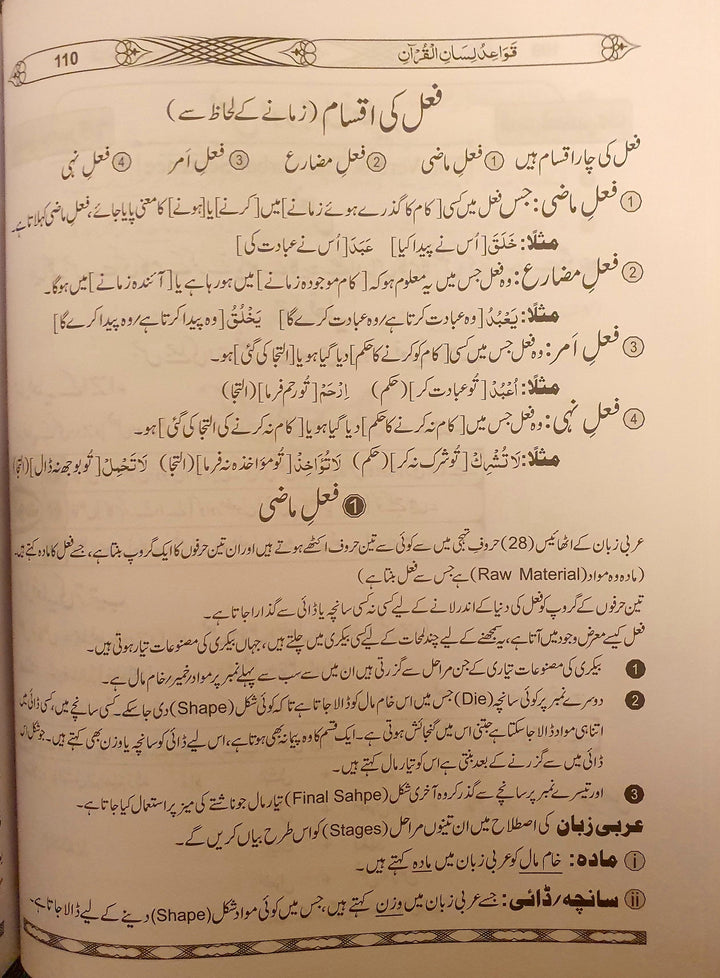 قَوَاعِدُ لِسَانِ الْقُرْآنِ
110
فعل کی اقسام (زمانے کے لحاظ سے)
فعل کی چار اقسام ہیں ① فعلِ ماضی ② فعلِ مضارع ③ فعلِ اَمر ④ فعلِ نہی
① فعلِ ماضی: جس فعل میں کسی [کام کا گذرے ہوئے زمانے] میں [کرنے] یا [ہونے] کا معنی پایا جائے، فعلِ ماضی کہلاتا ہے۔
مثلًا: خَلَقَ [اُس نے پیدا کیا] عَبَدَ [اُس نے عبادت کی]
② فعلِ مضارع: وہ فعل جس میں یہ معلوم ہو کہ [کام موجودہ زمانے] میں ہو رہا ہے یا [آئندہ زمانے] میں ہوگا۔
مثلًا: يَعْبُدُ [وہ عبادت کرتا ہے/وہ عبادت کرے گا] يَخْلُقُ [وہ پیدا کرتا ہے/وہ پیدا کرے گا]
③ فعلِ اَمر: وہ فعل جس میں کسی [کام کو کرنے کا حکم] دیا گیا ہو یا [التجا کی گئی] ہو۔
مثلًا: اُعْبُدْ [تُو عبادت کر] (حکم) اِرْحَمْ [تُو رحم فرما] (التجا)
④ فعلِ نہی: وہ فعل جس میں [کام نہ کرنے کا حکم] دیا گیا ہو یا [کام نہ کرنے کی التجا کی گئی] ہو۔
مثلًا: لَا تُشْرِكْ [تُو شرک نہ کر] (حکم) لَا تُؤَاخِذْ [تُو مؤاخذہ نہ فرما] (التجا) لَا تَحْمِلْ [تُو بوجھ نہ ڈال] (التجا)
❶ فعلِ ماضی
عربی زبان کے اٹھائیس (28) حروفِ تہجی میں سے کوئی سے تین حروف اکٹھے ہوتے ہیں اور ان تین حرفوں کا ایک گروپ بنتا ہے، جسے فعل کا مادہ کہتے ہیں۔
(مادہ وہ مواد (Raw Material) ہے جس سے فعل بنتا ہے)
تین حرفوں کے گروپ کو فعل کی دنیا کے اندر لانے کے لیے کسی نہ کسی سانچہ یا ڈائی سے گذارا جاتا ہے۔
فعل کیسے معرضِ وجود میں آتا ہے، یہ سمجھنے کے لیے چند لمحات کے لیے کسی بیکری میں چلتے ہیں، جہاں بیکری کی مصنوعات تیار ہوتی ہیں۔
❶ بیکری کی مصنوعات تیاری کے جن مراحل سے گزرتی ہیں ان میں سے سب سے پہلے نمبر پر مواد/خمیر/خام مال ہے۔
❷ دوسرے نمبر پر کوئی سانچہ (Die) جس میں اس خام مال کو ڈالا جاتا ہے تا کہ کوئی شکل (Shape) دی جا سکے۔ کسی سانچے میں، کسی ڈائی میں
اتنا ہی مواد ڈالا جا سکتا ہے جتنی اس میں گنجائش ہوتی ہے۔ ایک قسم کا وہ پیمانہ بھی ہوتا ہے، اس لیے ڈائی کو سانچہ یا وزن بھی کہتے ہیں۔ جو شکل اس
ڈائی میں سے گزرنے کے بعد بنتی ہے اس کو تیار مال کہتے ہیں۔
❸ اور تیسرے نمبر پر سانچے سے گذر کر وہ آخری شکل (Final Sahpe) تیار مال جو ناشتے کی میز پر استعمال کیا جاتا ہے۔
عربی زبان کی اصطلاح میں ان تینوں مراحل (Stages) کو اس طرح بیاں کریں گے۔
ⓘ مادہ: خام مال کو عربی زبان میں مادہ کہتے ہیں۔
ⓘⓘ سانچہ/ڈائی: جسے عربی زبان میں وزن کہتے ہیں، جس میں کوئی مواد شکل (Shape) دینے کے لیے ڈالا جاتا ہے۔